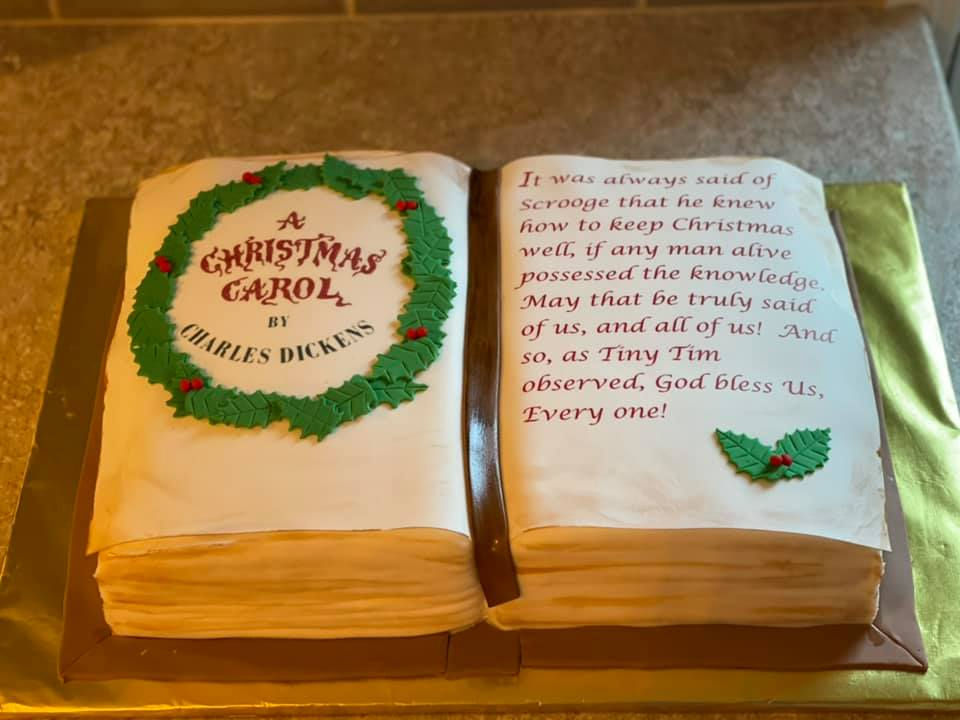 A
CHRISTMAS
CAROL
BY
CHARLES DICKENS
It was always said of
Scrooge that he knew
how to keep Christmas
well, if any man alive
possessed the knowledge.
May that be truly said
of us, and all of us! And
so, as Tiny Tim
observed, God bless Us,
Every one!